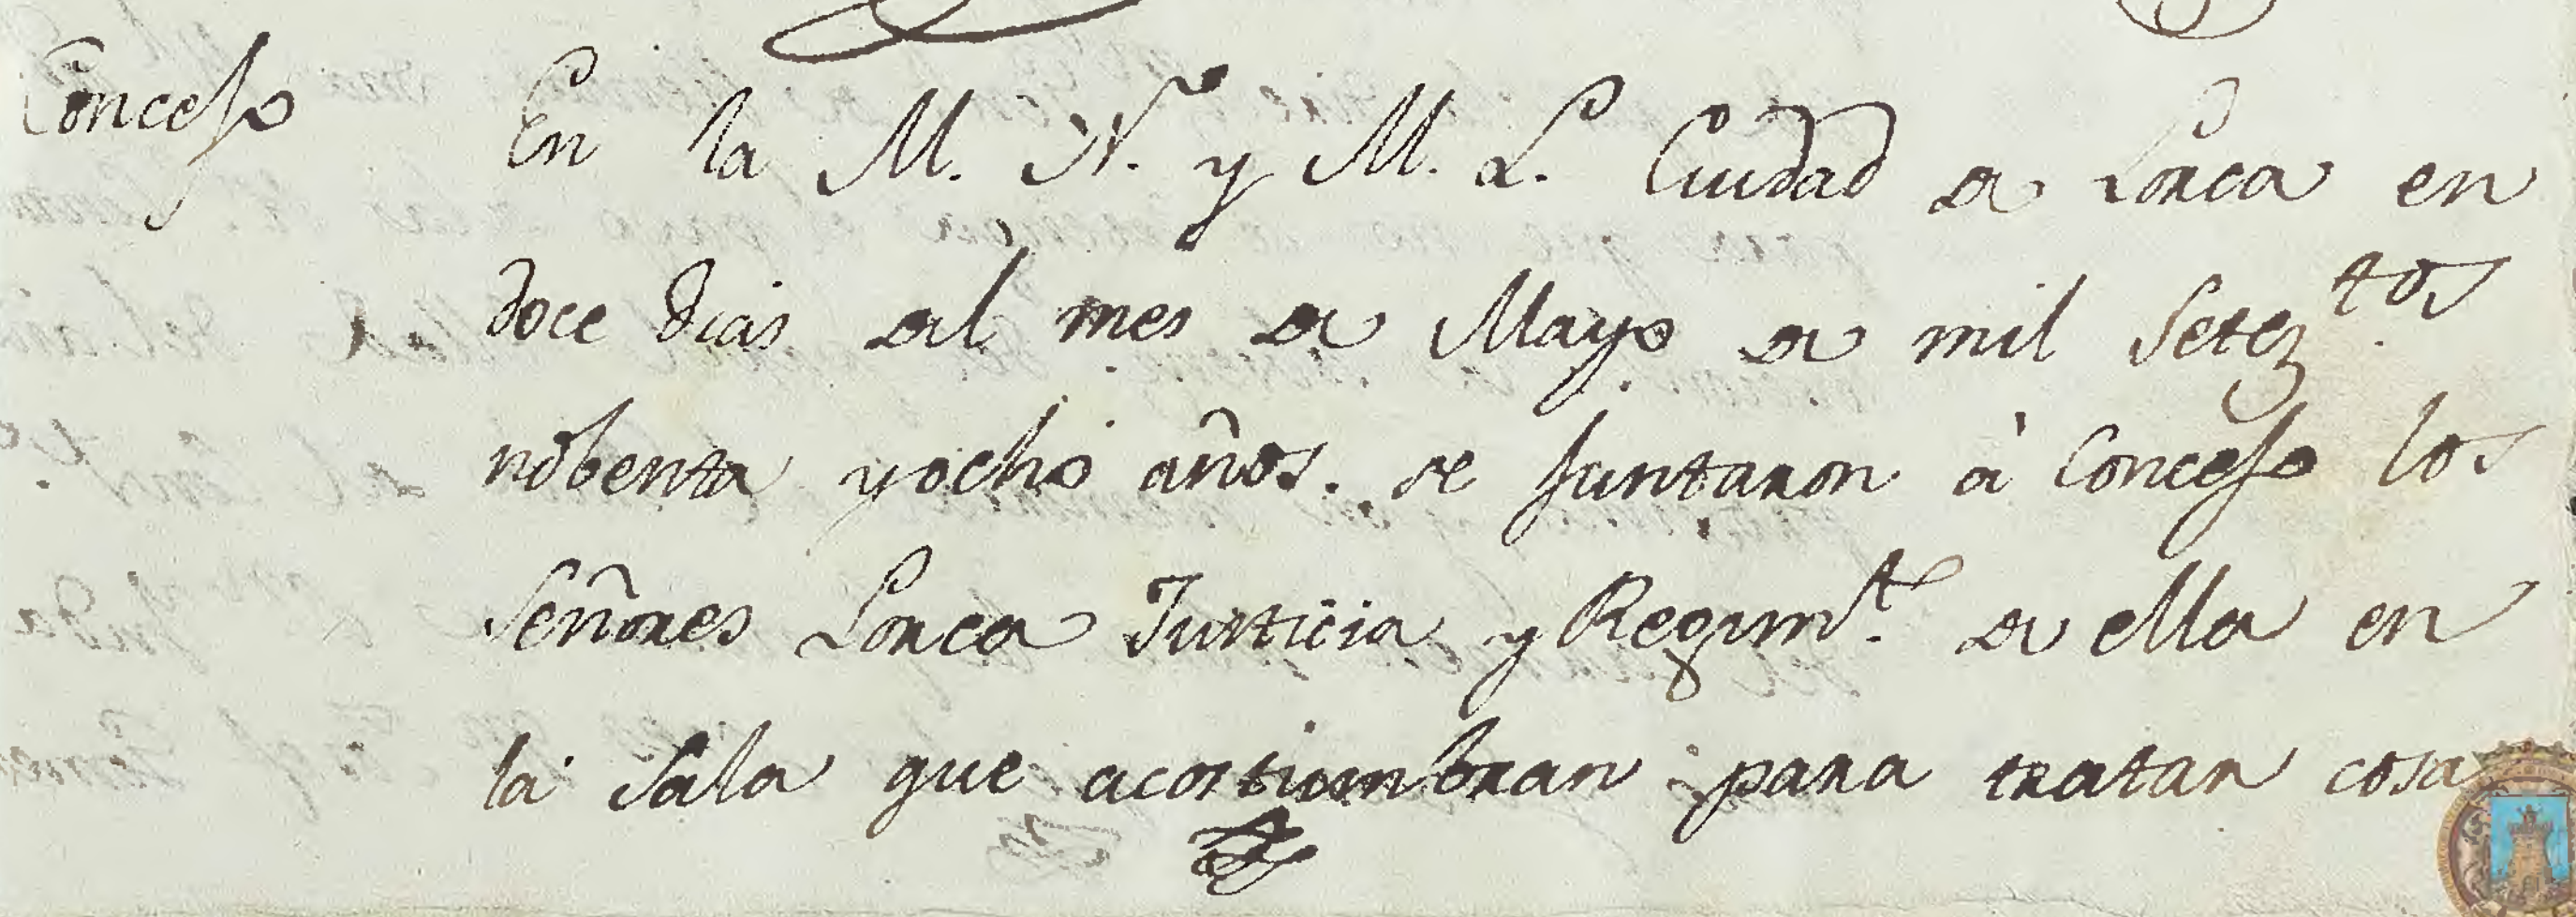 Concejo
En la M. N. y M. L. Ciudad de Lorca en
doce dias del mes de Mayo de mil Setez.tos
nobenta y ocho años. se juntaron à Concejo los
Señores Lorca Justicia y Regim.to de ella en
la Sala que acostumbran para tratar cosa